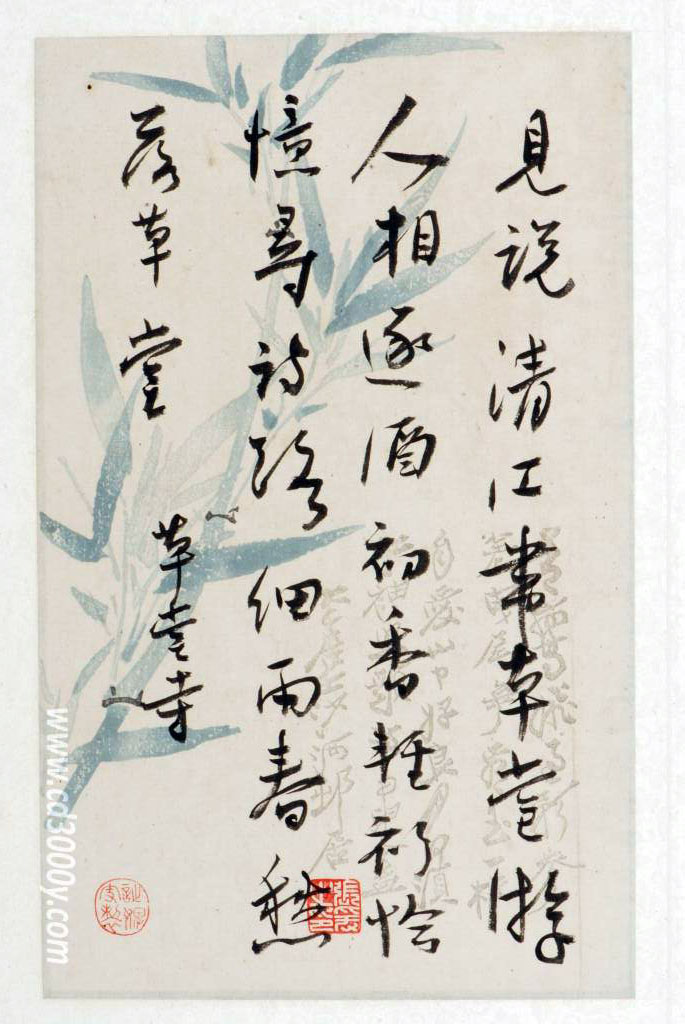 見說清江帶草堂游
人相逐酒初香輕衫恰
憶尋詩路細雨春愁
落草堂
草堂寺
www.cd3000y.com